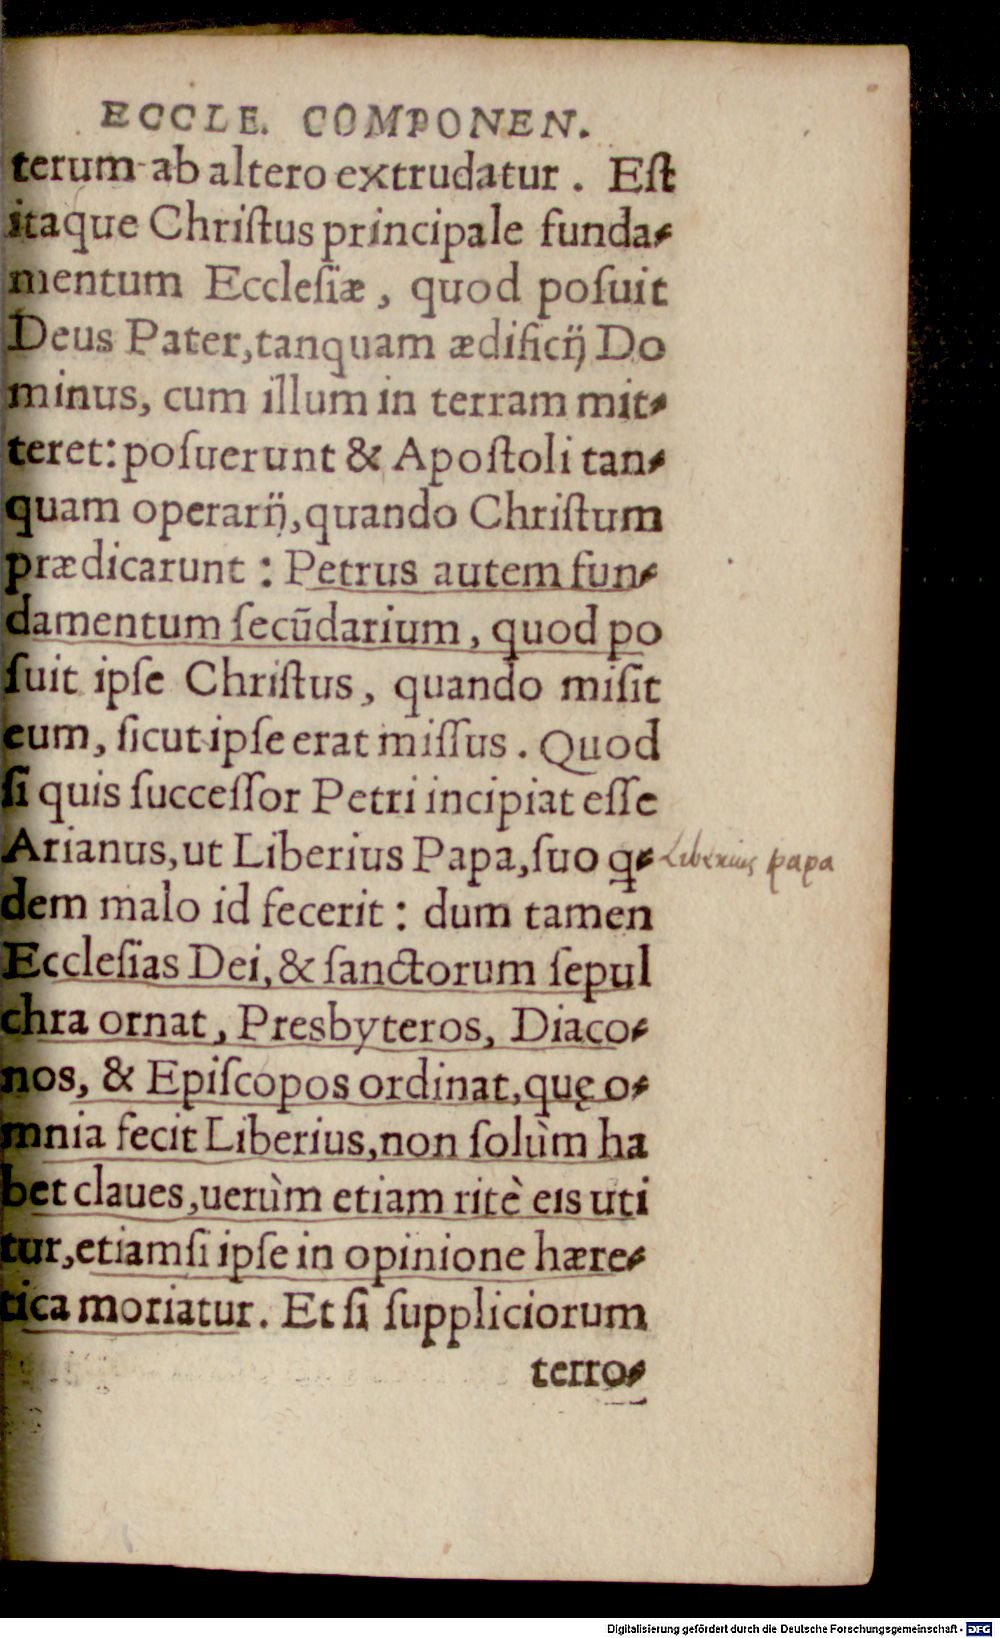 ECCLE. COMPONEN.
terum ab altero extrudatur. Eſt
itaque Chriſtus principale funda-
mentum Eccleſiæ, quod poſuit
Deus Pater, tanquam ædificĳ Do
minus, cum illum in terram mit-
teret: poſuerunt & Apoſtoli tan-
quam operarĳ, quando Chriſtum
prædicarunt: Petrus autem fun-
damentum ſecũdarium, quod po
ſuit ipſe Chriſtus, quando miſit
eum, ſicut ipſe erat miſſus. Quod
ſi quis ſucceſſor Petri incipiat eſſe
Arianus, ut Liberius Papa, ſuo q̃- Liberius papa
dem malo id fecerit: dum tamen
Eccleſias Dei, & ſanctorum ſepul
chra ornat, Presbyteros, Diaco-
nos, & Epiſcopos ordinat, quę o-
mnia fecit Liberius, non ſolùm ha
bet claues, uerùm etiam ritè eis uti
tur, etiamſi ipſe in opinione hære-
tica moriatur. Et ſi ſuppliciorum
terro-
Digitalisierung gefördert durch die Deutsche Forschungsgemeinschaft - DFG